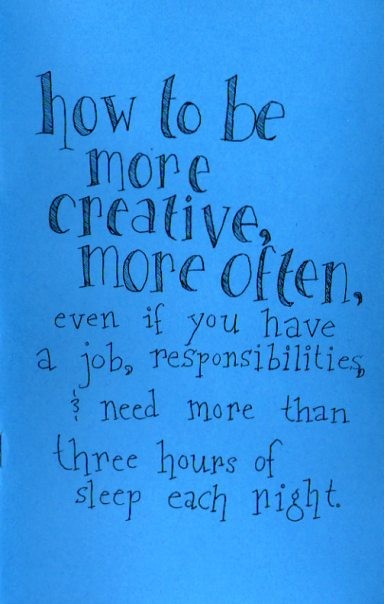 how to be
more
creative,
more often,
even if you have
a job, responsibilities,
& need more than
three hours of
sleep each night.